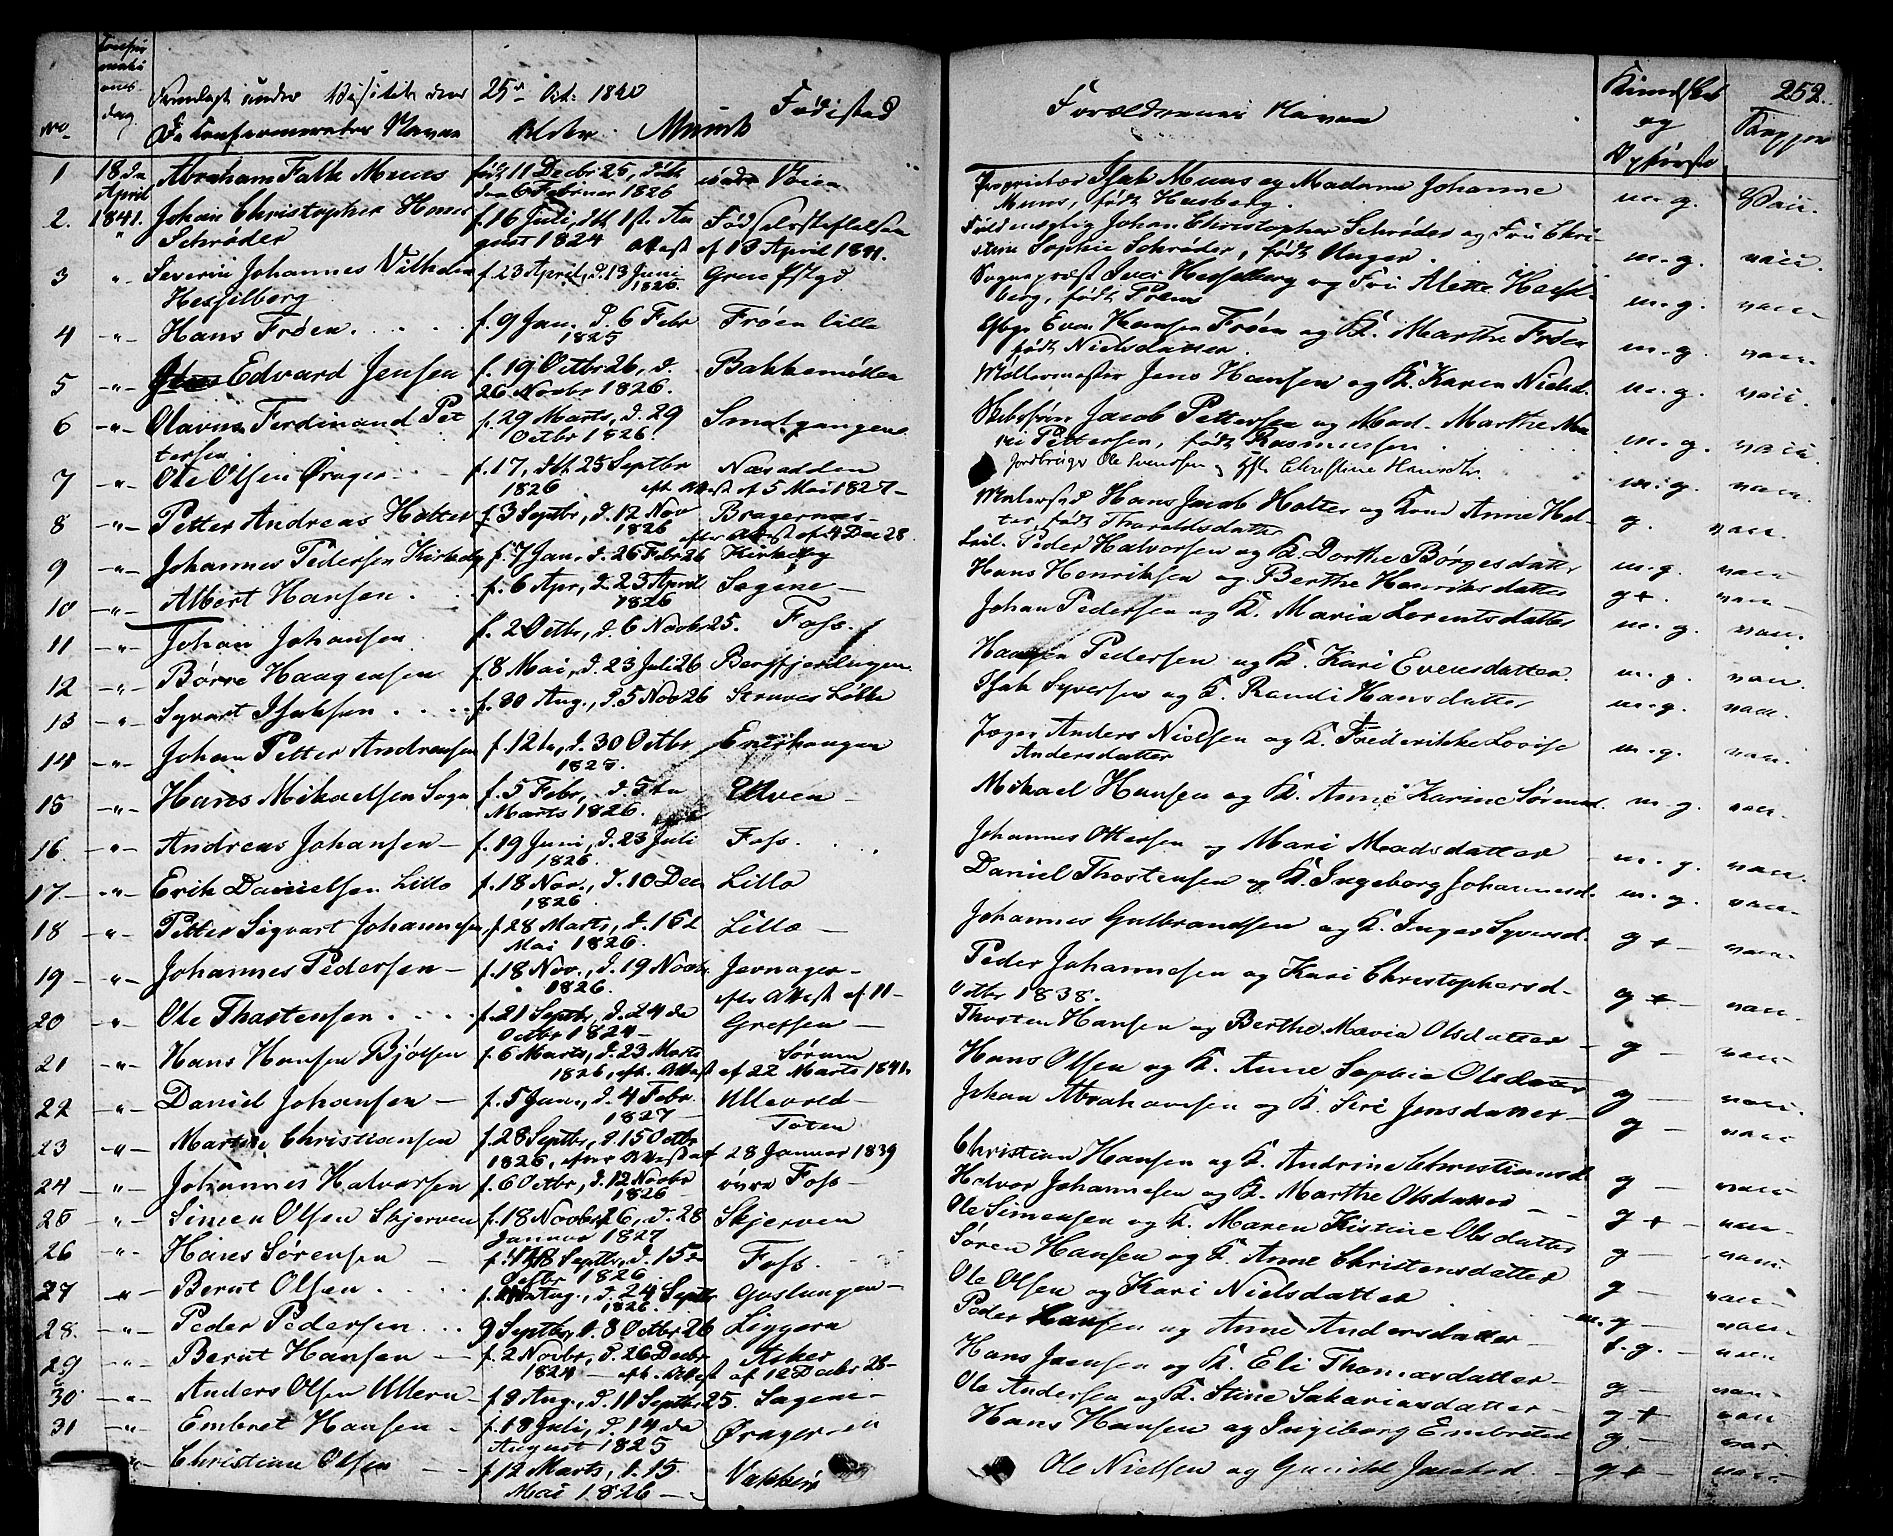 Confirmationsdag
Fremlagt under Visitats den 25de Oct: 1840
252.
No De Confirmeredes Navne Alder. Munch Fødested Forældrenes Navne Kundskab og Opførsel Kopper
1 18da April Abraham Falk Muus født 11 Decbr 25, døbt den 6 Februar 1826 Vøien Proprietær Isak Muus og Madame Johanne Muus, født Husberg. m. g. vacc.
2. 1841. Johan Christopher Hans Schrøder f. 16 Juli, dbt 1st. August 1824 Attest Fødselsstiftelsen af 13 April 1841. Fuldmægtig Johan Christopher Schrøder og Fru Christine Sophie Schrøder, født Unger. m. g. vacc.
3 " Severin Johannes Vilhelm Hesselberg f. 23 April, d. 13 Juni 1826. Sognepræst Iver Hesselberg og Fru Mette Hesselberg, født Prem m. g. vacc.
4 -"- Hans Frøen. f. 9 Jan. d. 6 Febr 1825 Frøen lille Even Hansen Frøen og K. Marthe Frøen født Nielsdatter. m. g. vacc.
5 -"- Edvard Jensen f. 19 Octbr 26, d. 26 Novbr 1826. Bakkemøllen Møllermester Jens Hansen og K. Karen Nielsd. m. g. vacc.
6 -"- Olavus Ferdinand Pettersen f. 29 Marts, d. 29 Octbr 1826. Smalgangen Jacob Pettersen og Mad. Marthe Marie Pettersen, født Rasmussen. m. g. vacc.
7 -"- Ole Olsen Ørager f. 17, dbt 25 Septbr 1826 Næsodden eft. Attest af 5 Mai 1827- Jordbruger Ole Svendsen og Christine Hansdtr. m. g. vacc.
8 -"- Petter Andreas Holter f. 3 Septbr, d. 12 Nov 1826 Bragernæs- efter Attest af 4 Dec 28. Malersvd Hans Jacob Holter og Kone Anne Holter, født Tharaldsdatter g. vacc.
9 -"- Johannes Pedersen Kirkeby f. 7 Jan, d. 26 Febr 26 Kirkeby Peder Halvorsen og K. Dorthe Børgesdatter m. g. vacc.
10 -"- Albert Hansen. f. 6 Apr, d. 23 April 1826 Sagene- Hans Henriksen og Berthe Henriksdatter g+. vacc.
11 -"- Johan Johansen f. 2 Octbr, d. 6 Novbr 25. Foss. Johan Pedersen og K. Maria Lorentsdatter m. g. vacc.
12 -"- Børre Haagensen f. 8 Mai, d. 23 Juli 26 Bergfjerdingen Haagen Pedersen og K. Kari Evensdatter. m. g. vacc.
13 -"- Syvert Isaksen f. 30 Aug., d. 5 Nov 26 Struves Løkke Isak Syversen og K. Randi Hansdatter m. g. vacc.
14 -"- Johan Petter Andersen f. 12te, d. 30 Octbr 1825. Enerhaugen Anders Nielsen og K. Frederikke Lovise Andersdatter m. g. vacc.
15 -"- Hans Mikaelsen f. 5 Febr, d. 5te Marts 1826. Mikael Hansen og K. Anne Karine Sørensd. m. g. vacc.
16 -"- Andreas Johansen- f. 19 Juni, d. 23 Juli 1826 Foss. Johannes Ottersen og Mari Madsdatter m. g. vacc.
17 -"- Erik Danielsen Lillo f. 18 Nov., d. 10 Dec 1826. Lillo Daniel Thostensen og K. Ingeborg Johannesd. m. g. vacc.
18 -"- Petter Sigvart Johannesen f. 28 Marts, d. 16 Mai 1826. Lillo- Johannes Gulbrandsen og K. Inger Syversd. g+- vacc.
19 -"- Johannes Pedersen- f. 18 Nov., d. 19 Novbr 1826. Jevnager- efter Attest af 11- Octbr 1838. Peder Johannesen og Kari Christophersd- g+- vacc.
20 -"- Ole Thostensen f. 21 Septbr, d. 24 de Octbr 1824- Grefsen- Thosten Hansen og Berthe Maria Olsdatter- g- vacc-
21 -"- Hans Hansen Bjølsen f. 6 Marts, d. 23 Marts 1826, eft. Attest af 22 Marts 1841. Sørum Hans Olsen og K. Anne Sophie Olsdatter g- vacc.
22 -"- Daniel Johansen- f. 5 Jan., d. 4 Febr. 1827- Ullevold- Johan Abrahamsen og K. Siri Jensdatter- g- vacc
23 -"- Christiansen f. 28 Septbr, d. 15 Octbr 1826, efter Attest af 28 Januar 1839 Toten Christian Hansen og K. Andrine Christiansd. g- vacc-
24 -"- Johannes Halvorsen f. 6 Octbr, d. 12 Novbr 1826 øvre Foss- Halvor Johannesen og K. Marthe Olsdatter-- g+- vacc-
25 -"- Simen Olsen Skjerven f. 18 Novbr 26, d. 28 Januar 1827 Skjerven Ole Simensen og K. Maren Kistine Olsdatter g- vacc-
26 -"- Hans Sørensen f. 18 Septbr, d. 15 Octbr 1826 Foss. Søren Hansen og K. Anne Christensdatter g- vacc-
27 -"- Bernt Olsen f. Aug., d. 24 Septbr 1826. Gaslungen- Ole Olsen og Kari Nielsdatter m. g- vacc-
28. -"- Peder Pedersen 9 Septbr, d. 8 Octbr 26 Peder Hansen og Anne Andersdatter- vacc
29 -"- Bernt Hansen- f. 2 Novbr, d. 26 Decbr 1824- eft. Attest af 12 Decbr 26- Asker Hans Jensen og K. Eli Thomasdatter- g- vacc-
30 -"- Anders Olsen Ullern- f. 8 Aug, d. 11 Septbr 25. Sagene- Ole Andersen og K. Stine Sakariasdatter- g+ vacc
31 -"- Embret Hansen- f. 18 Juli, d. 14 de August 1825 Ørager- Hans Hansen og Ingeborg Embretsd g- vac
-"- Christian Olsen- f. 12 Marts, d. 15 Mai 1826- Ole Nielsen og Gunild g+- vacc-